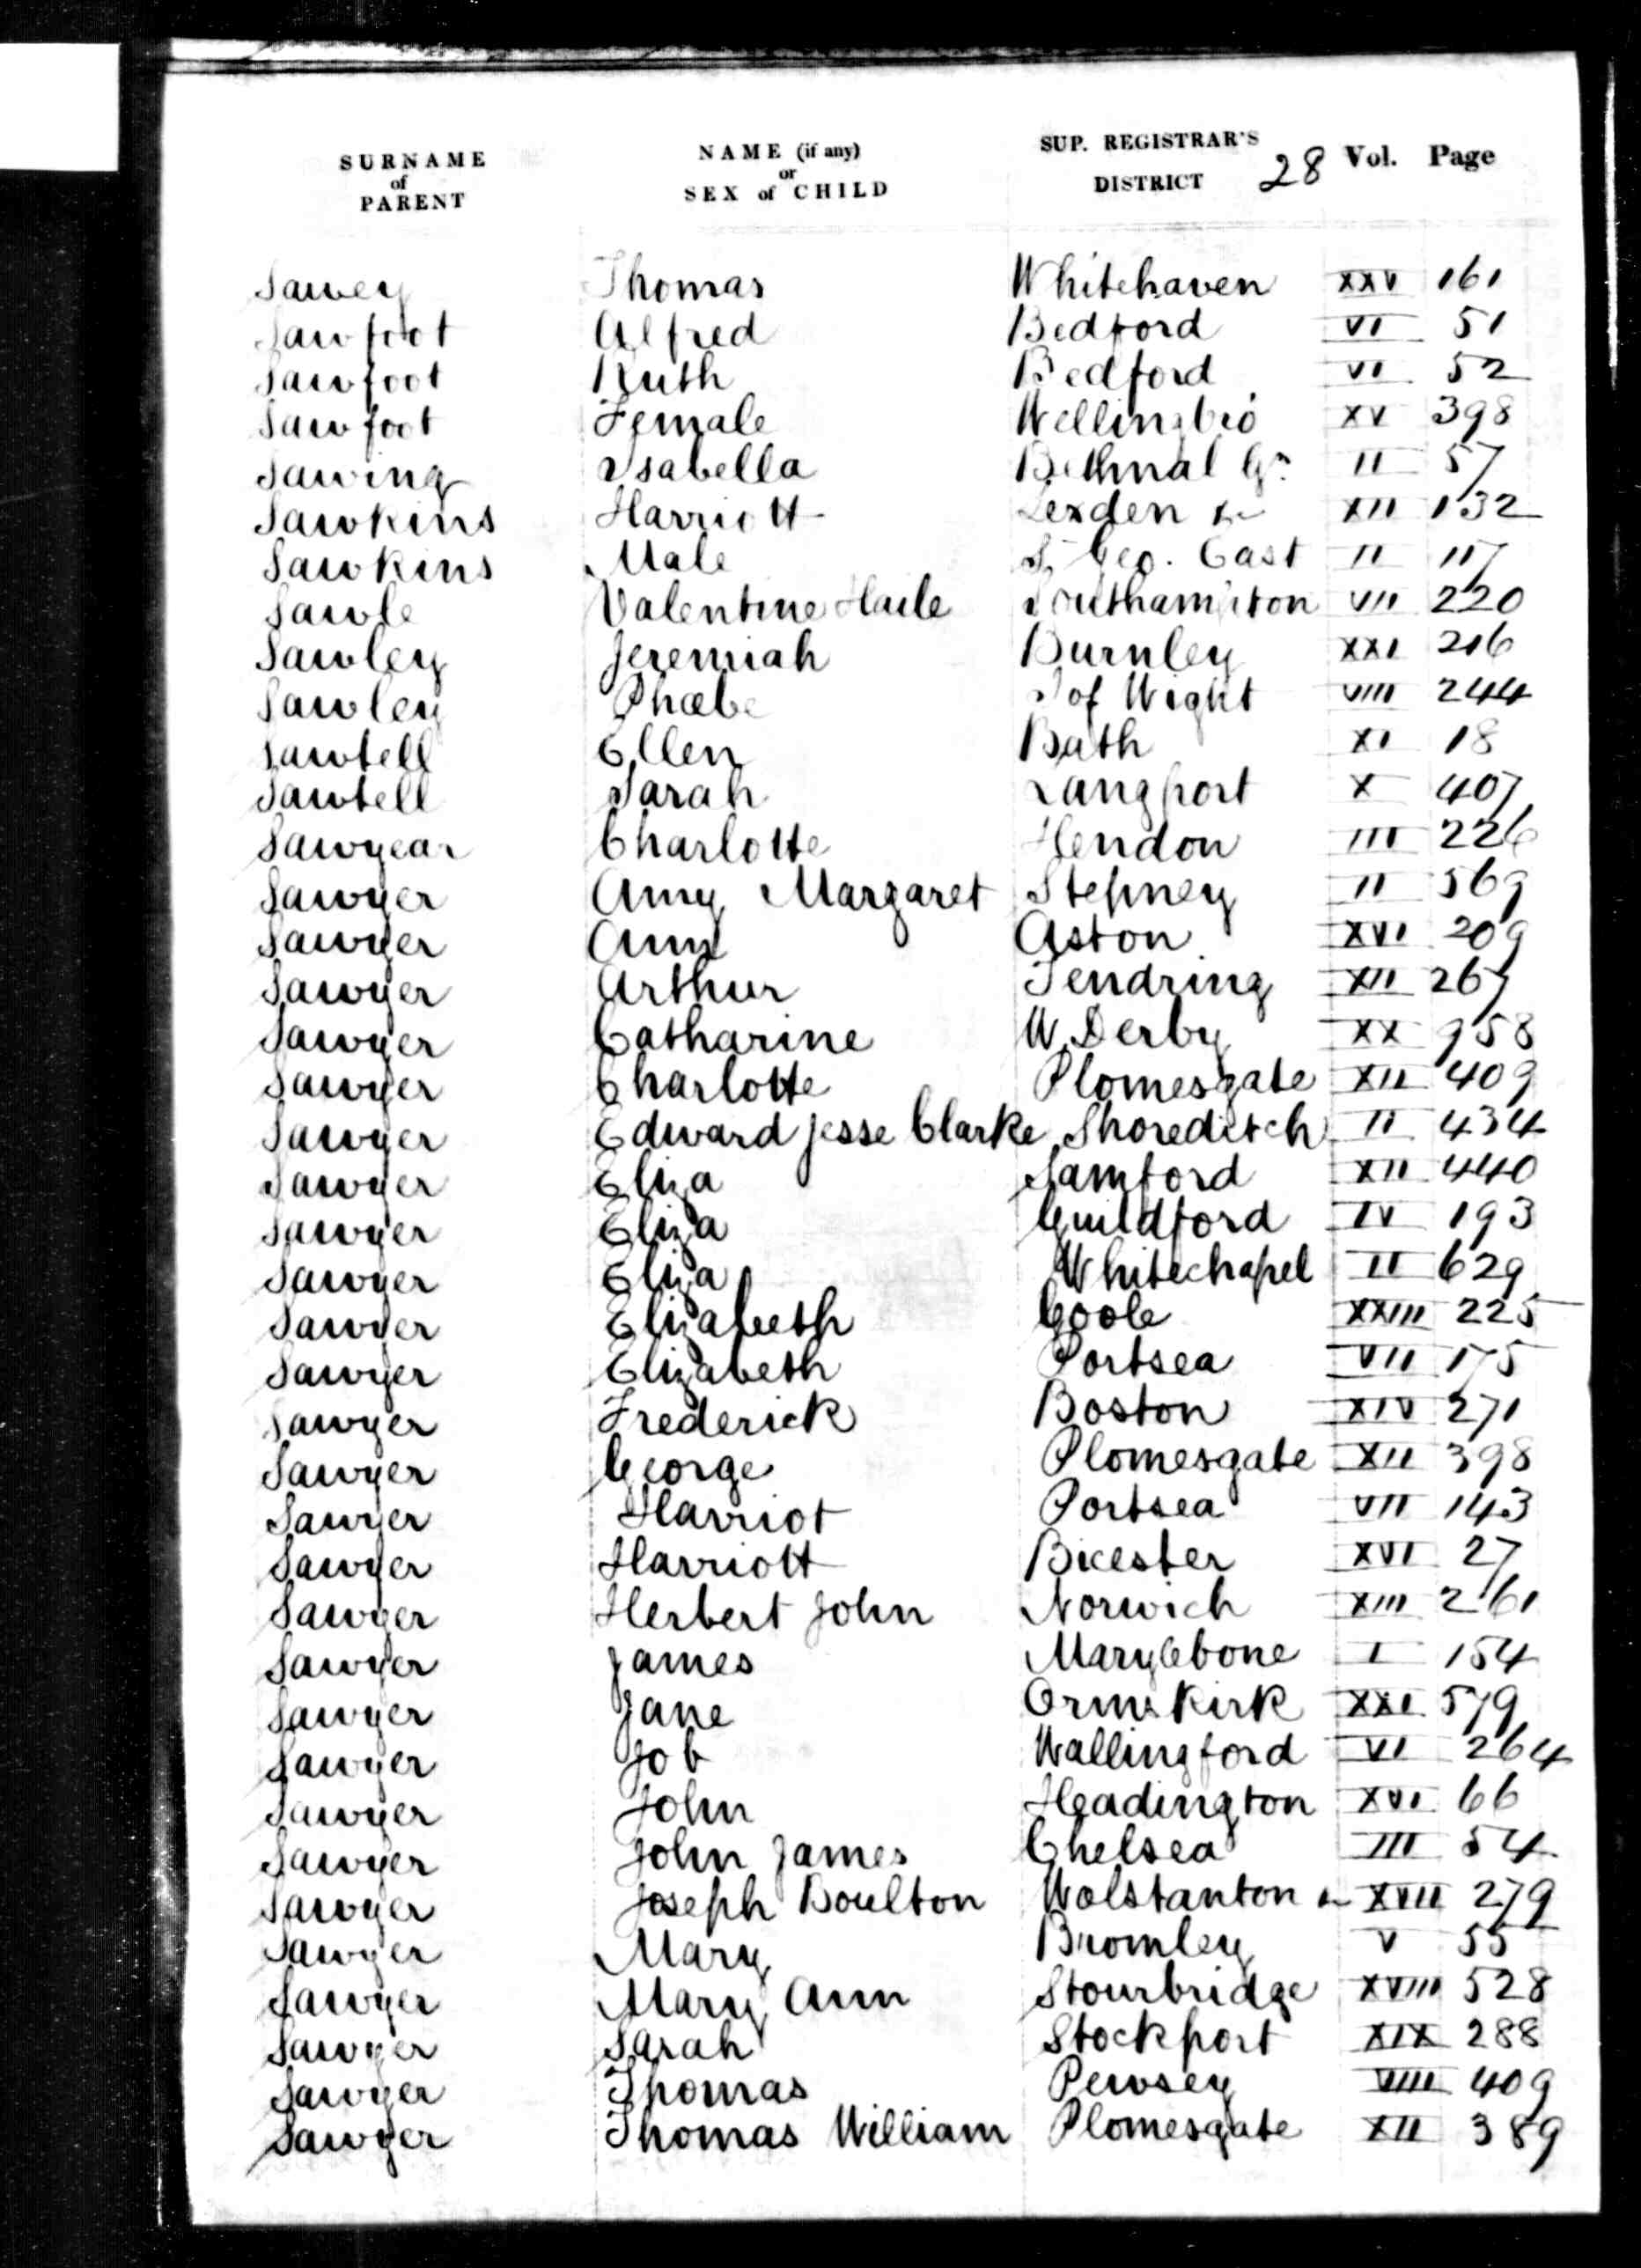 SURNAME of PARENT NAME (if any) or SEX of CHILD SUP. REGISTRAR'S DISTRICT 28 Vol. Page
Sawey Thomas Whitehaven XXV 161
Sawfoot Alfred Bedford VI 51
Sawfoot Ruth Bedford VI 52
Sawfoot Female Wellingbro XV 398
Sawing Isabella Bethnal Gn. II 57
Sawkins Harriott Lexden &c XII 132
Sawkins Male St Geo. East II 117
Sawle Valentine Haile Southampton VII 220
Sawley Jeremiah Burnley XXI 216
Sawley Phœbe I of Wight VIII 244
Sawtell Ellen Bath XI 18
Sawtell Sarah Langport X 407
Sawyear Charlotte Hendon III 226
Sawyer Amy Margaret Stepney II 569
Sawyer Ann Aston XVI 209
Sawyer Arthur Tendring XII 267
Sawyer Catharine W. Derby XX 958
Sawyer Charlotte Plomesgate XII 409
Sawyer Edward Jesse Clarke Shoreditch II 434
Sawyer Eliza Samford XII 440
Sawyer Eliza Guildford IV 193
Sawyer Eliza Whitechapel II 629
Sawyer Elizabeth Goole XXIII 225
Sawyer Elizabeth Portsea VII 175
Sawyer Frederick Boston XIV 271
Sawyer George Plomesgate XII 398
Sawyer Harriot Portsea VII 143
Sawyer Harriott Bicester XVI 27
Sawyer Herbert John Norwich XIII 261
Sawyer James Marylebone I 154
Sawyer Jane Ormskirk XXI 579
Sawyer Job Wallingford VI 264
Sawyer John Headington XVI 66
Sawyer John James Chelsea III 54
Sawyer Joseph Boulton Wolstanton &c XVII 279
Sawyer Mary Bromley V 55
Sawyer Mary Ann Stourbridge XVIII 528
Sawyer Sarah Stockport XIX 288
Sawyer Thomas Pewsey VIII 409
Sawyer Thomas William Plomesgate XII 389